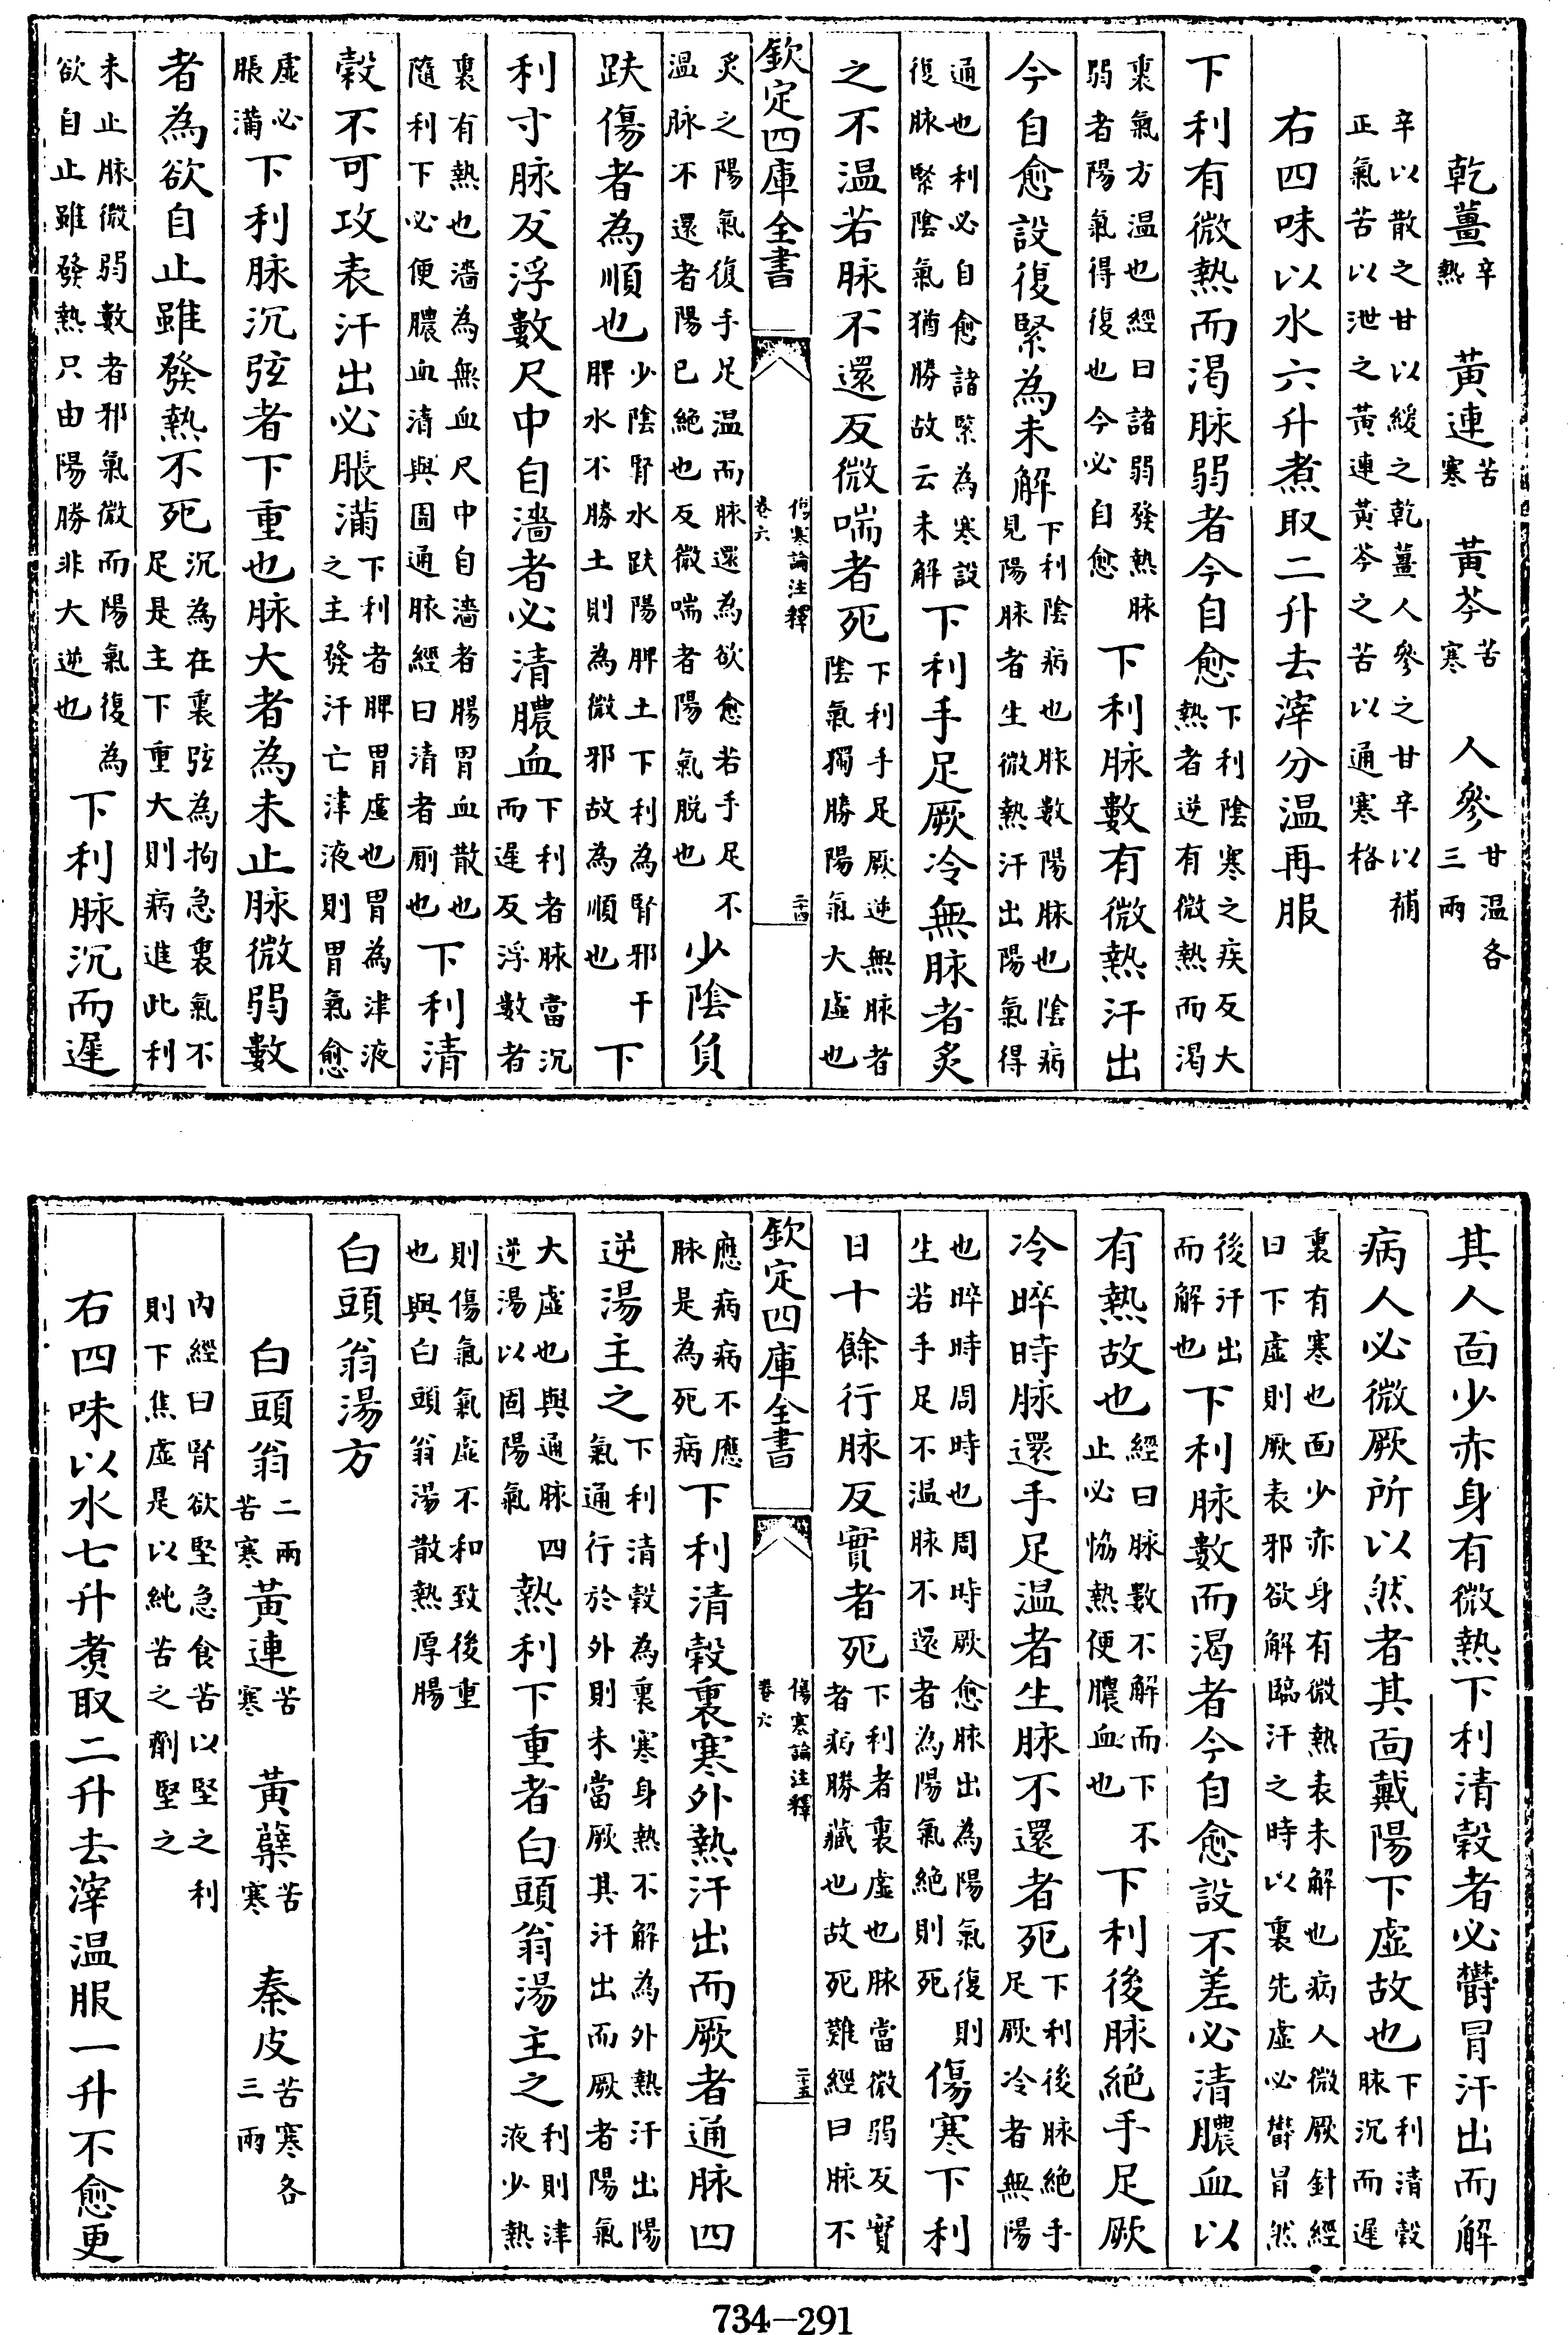 乾薑辛熱　黄連苦寒　黄芩苦寒　人參甘温各三兩
辛以散之甘以緩之乾薑人參之甘辛以補正氣苦以泄之黄連黄芩之苦以通寒格
右四味以水六升煮取二升去滓分温再服
下利有微熱而渴脉弱者今自愈下利陰寒之疾反大熱者逆有微熱而渴
裏氣方温也經曰諸弱發熱脉弱者陽氣得復也今必自愈下利脉數有微熱汗出
今自愈設復緊為未解下利陰病也脉數陽脉也陰病見陽脉者生微熱汗出陽氣得
通也利必自愈諸緊為寒設復脉緊陰氣猶勝故云未解下利手足厥冷無脉者炙
之不温若脉不還反微喘者死下利手足厥逆無脉者陰氣獨勝陽氣大虚也
欽定四庫全書
傷寒論注釋
卷六
二十四
炙之陽氣復手足温而脉還為欲愈若手足不温脉不還者陽已絶也反微喘者陽氣脱也少陰負
趺傷者為順也少陰腎水趺陽脾土下利為腎邪干脾水不勝土則為微邪故為順也下
利寸脉反浮數尺中自濇者必清膿血下利者脉當沉而遲反浮數者
裏有熱也濇為無血尺中自濇者腸胃血散也隨利下必便膿血清與圊通脉經曰清者厠也下利清
穀不可攻表汗出必脹滿下利者脾胃虚也胃為津液之主發汗亡津液則胃氣愈
虚必脹滿下利脉沉弦者下重也脉大者為未止脉微弱數
者為欲自止雖發熱不死沉為在裏弦為拘急裏氣不足是主下重大則病進此利
未止脉微弱數者邪氣微而陽氣復為欲自止雖發熱只由陽勝非大逆也下利脉沉而遲
其人面少赤身有微熱下利清穀者必鬱冒汗出而解
病人必微厥所以然者其面戴陽下虚故也下利清穀脉沉而遲
裏有寒也面少赤身有微熱表未解也病人微厥針經曰下虚則厥表邪欲解臨汗之時以裏先虚必鬱冒然
後汗出而解也下利脉數而渴者今自愈設不差必清膿血以
有熱故也經曰脉數不解而下不止必恊熱便膿血也下利後脉絶手足厥
冷晬時脉還手足温者生脉不還者死下利後脉絶手足厥冷者無陽
也晬時周時也周時厥愈脉出為陽氣復則生若手足不温脉不還者為陽氣絶則死傷寒下利
日十餘行脉反實者死下利者裏虚也脉當微弱反實者病勝藏也故死難經曰脉不
欽定四庫全書
傷寒論注釋
卷六
二十五
應病病不應脉是為死病下利清穀裏寒外熱汗出而厥者通脉四
逆湯主之下利清穀為裏寒身熱不解為外熱汗出陽氣通行於外則未當厥其汗出而厥者陽氣
大虚也與通脉四逆湯以固陽氣熱利下重者白頭翁湯主之利則津液少熱
則傷氣氣虚不和致後重也與白頭翁湯散熱厚腸
白頭翁湯方
白頭翁二兩苦寒　黄連苦寒　黄蘗苦寒　秦皮苦寒各三兩
内經曰腎欲堅急食苦以堅之利則下焦虚是以純苦之劑堅之
右四味以水七升煑取二升去滓温服一升不愈更
734—291